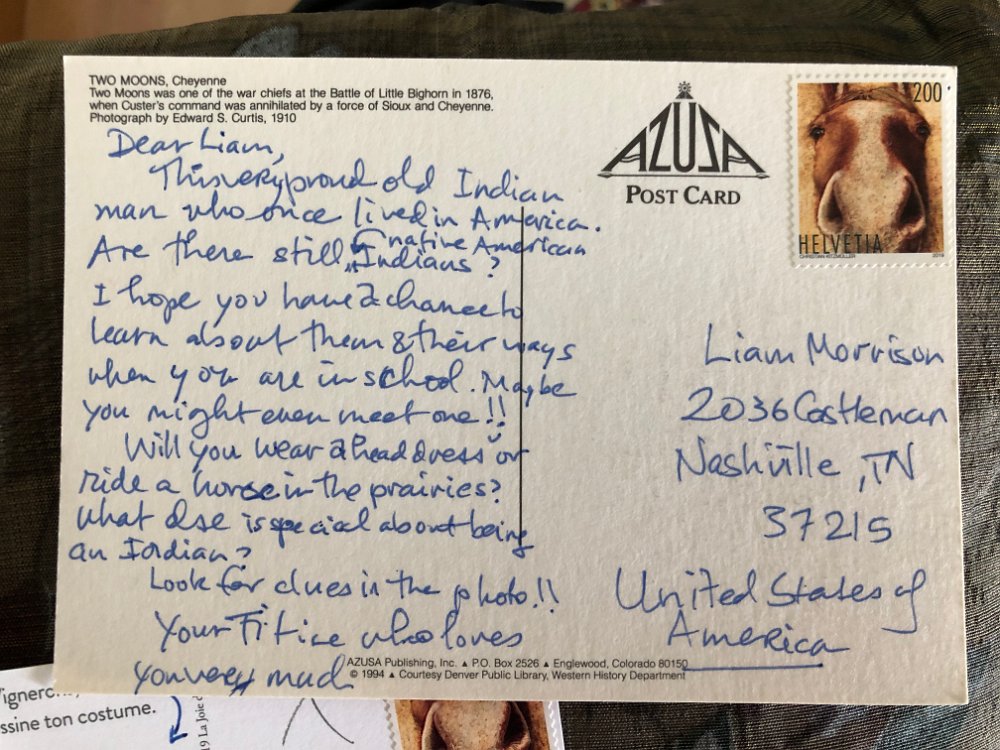 TWO MOONS, Cheyenne
Two Moons was one of the war chiefs at the Battle of Little Bighorn in 1876,
when Custer's command was annihilated by a force of Sioux and Cheyenne.
Photograph by Edward S. Curtis, 1910
Dear Liam,
This very proud old Indian
man who once lived in America.
Are there still native American
Indians?
I hope you have a chance to
learn about them & their ways
when you are in school. Maybe
you might even meet one!!
Will you wear a headdress or
ride a horse in the prairies?
What else is special about being
an Indian?
Look for clues in the photo!!
Your Titine who loves
you very much
AZUSA
POST CARD
200
HELVETIA
2019
Liam Morrison
2036 Castleman
Nashville, TN
37215
United States of
America
AZUSA Publishing, Inc. ▲ P.O. Box 2526 ▲ Englewood, Colorado 80150
© 1994 ▲ Courtesy Denver Public Library, Western History Department
ssine ton costume.
19 La Joie